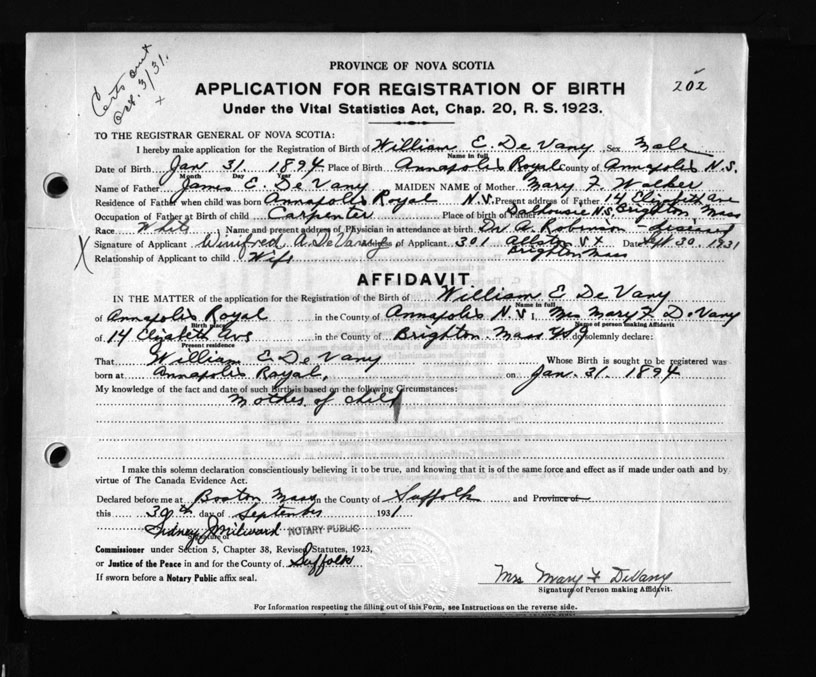 Certs out
Oct. 3/31.
x
PROVINCE OF NOVA SCOTIA
APPLICATION FOR REGISTRATION OF BIRTH
202
Under the Vital Statistics Act, Chap. 20, R. S. 1923.
TO THE REGISTRAR GENERAL OF NOVA SCOTIA:
I hereby make application for the Registration of Birth of William E. De Vany Sex Male
Name in full
Date of Birth Jan 31. 1894 Place of Birth Annapolis Royal County of Annapolis N.S.
Month Day Year
Name of Father James E. De Vany MAIDEN NAME of Mother Mary F Walker
Residence of Father when child was born Annapolis Royal N.S. Present address of Father 14 Elizabeth Ave
Brighton, Mass
Occupation of Father at Birth of child Carpenter Place of birth of Father Dalhousie N.S.
Race White Name and present address of Physician in attendance at birth Dr A. Robinson - deceased
X Signature of Applicant Winifred A. DeVany Address of Applicant 301 Allston St Date Sept 30. 1931
Relationship of Applicant to child Wife Brighton Mass
AFFIDAVIT.
IN THE MATTER of the application for the Registration of the Birth of William E. De Vany
Name in full
of Annapolis Royal in the County of Annapolis N.S I, Mrs Mary F. DeVany
Birth place Name of person making Affidavit
of 14 Elizabeth Ave in the County of Brighton. Mass do solemnly declare:
Present residence
That William E. De Vany Whose Birth is sought to be registered was
born at Annapolis Royal, on Jan. 31. 1894
My knowledge of the fact and date of such Birth is based on the following Circumstances:
Mother of child
I make this solemn declaration conscientiously believing it to be true, and knowing that it is of the same force and effect as if made under oath and by
virtue of The Canada Evidence Act.
Declared before me at Boston Mass in the County of Suffolk and Province of
this 30th day of September 1931
Sidney J Milward NOTARY PUBLIC
Signature of
Commissioner under Section 5, Chapter 38, Revised Statutes, 1923,
or Justice of the Peace in and for the County of Suffolk
If sworn before a Notary Public affix seal.
Mrs Mary F DeVany
Signature of Person making Affidavit.
For Information respecting the filling out of this Form, see Instructions on the reverse side.